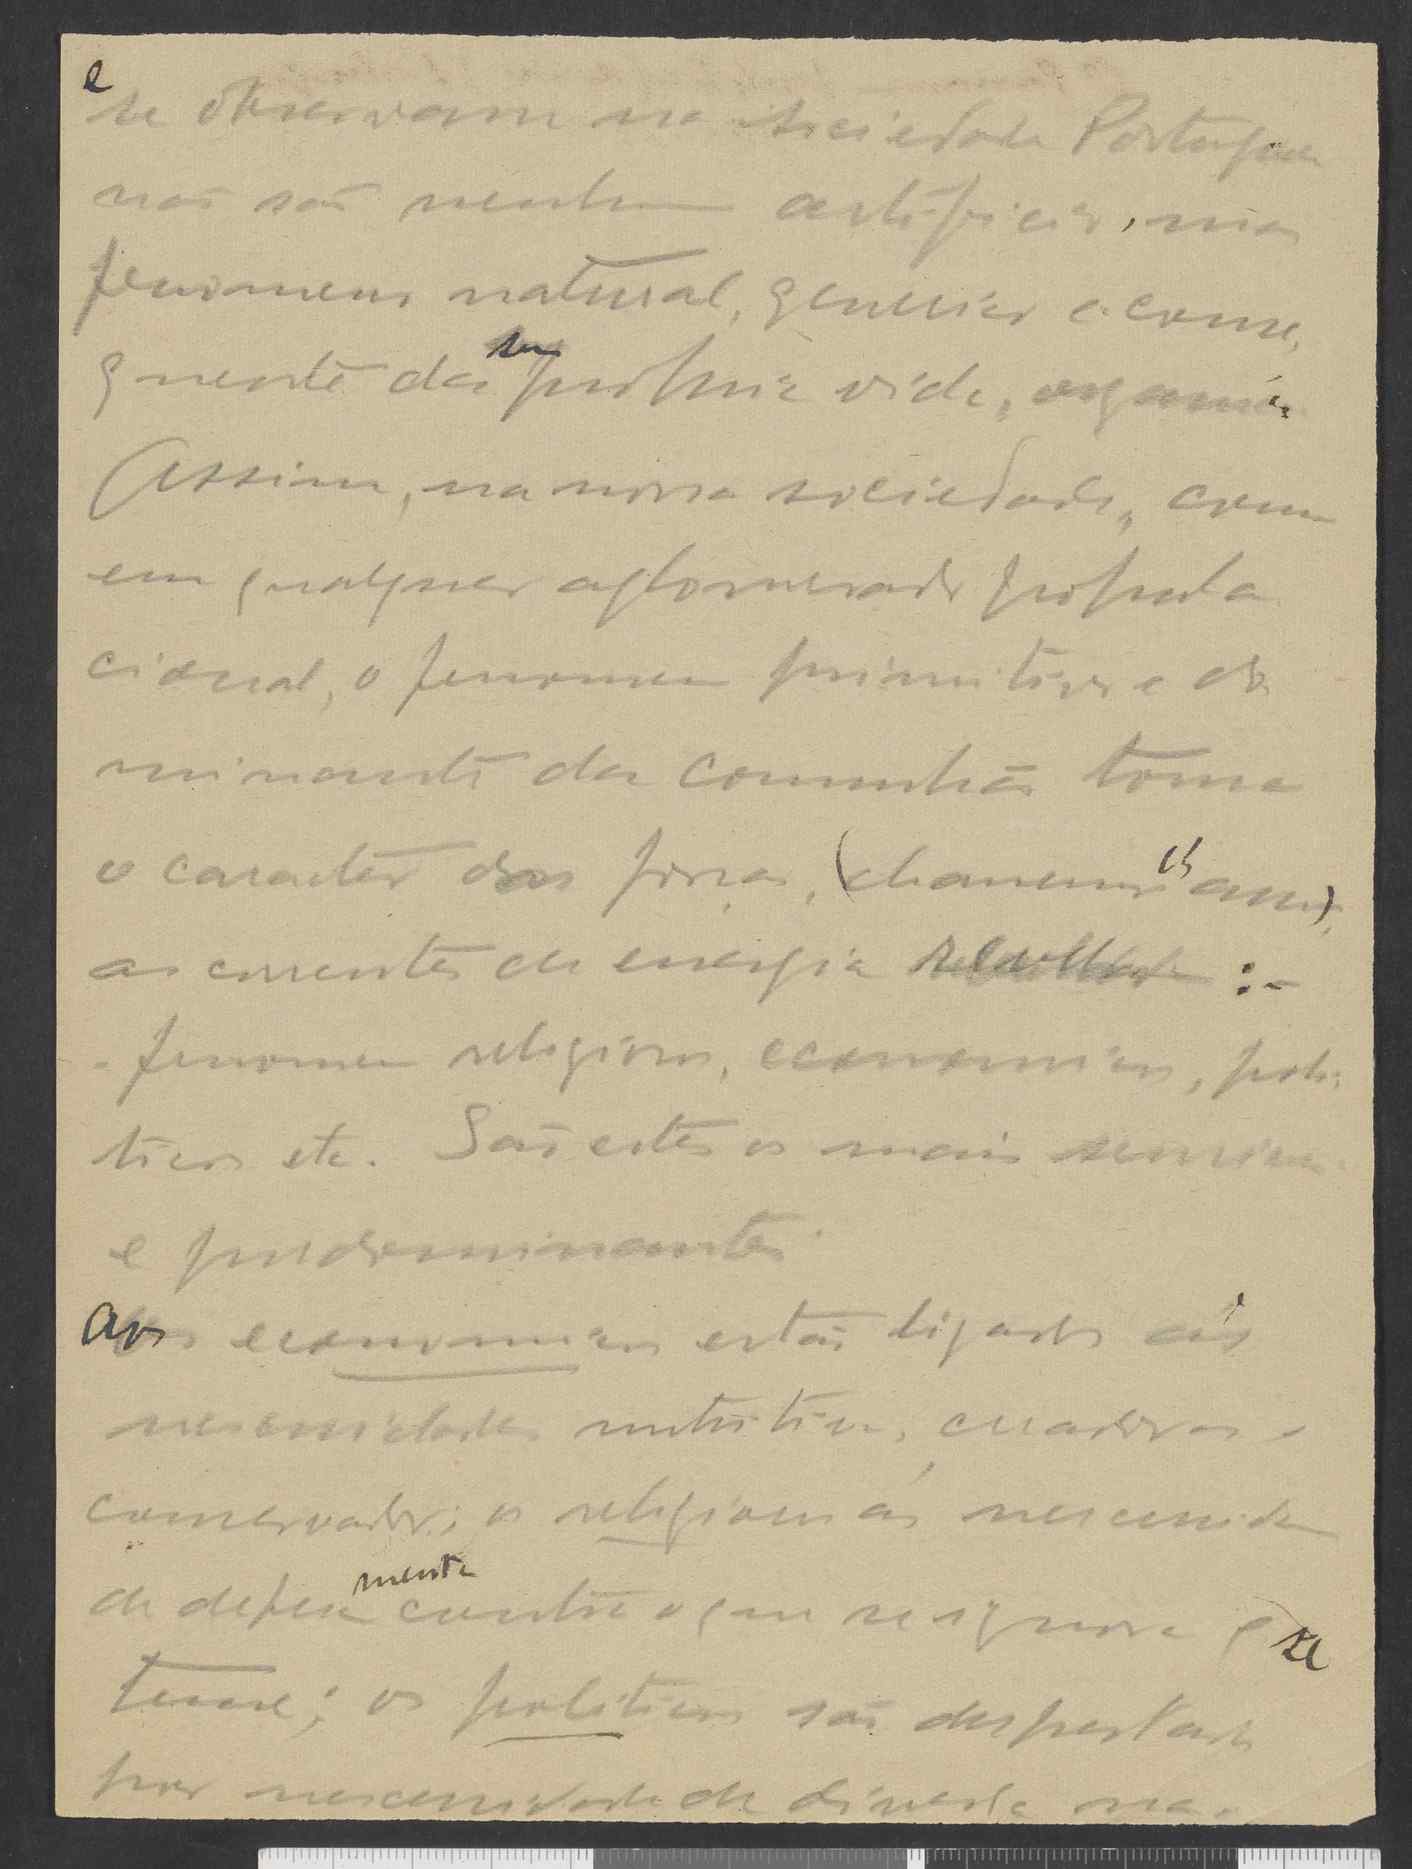 e
se observam na sociedade Portuguesa
não são nenhum artificio, mas
fenomenos natural, generico e conse,
quente da sua propria vida, organica
Assim, na nossa sociedade, como
em qualquer aglomerado popula
cional, o fenomeno primitivo e do
minante da comunhão toma
o caracter das forças, (chamemos ch assim),
as correntes de energia :-
- fenomeno religioso, economicos, poli
ticos etc. São estes os mais
e predominantes.
Aos economicos estão ligados ás
necessidades nutritivas, creadoras e
conservador; os religiosos ás necessida
de defesa mente contra o que se ignora e se
teme; os politicos são despertados
por necessidade de diversa na-